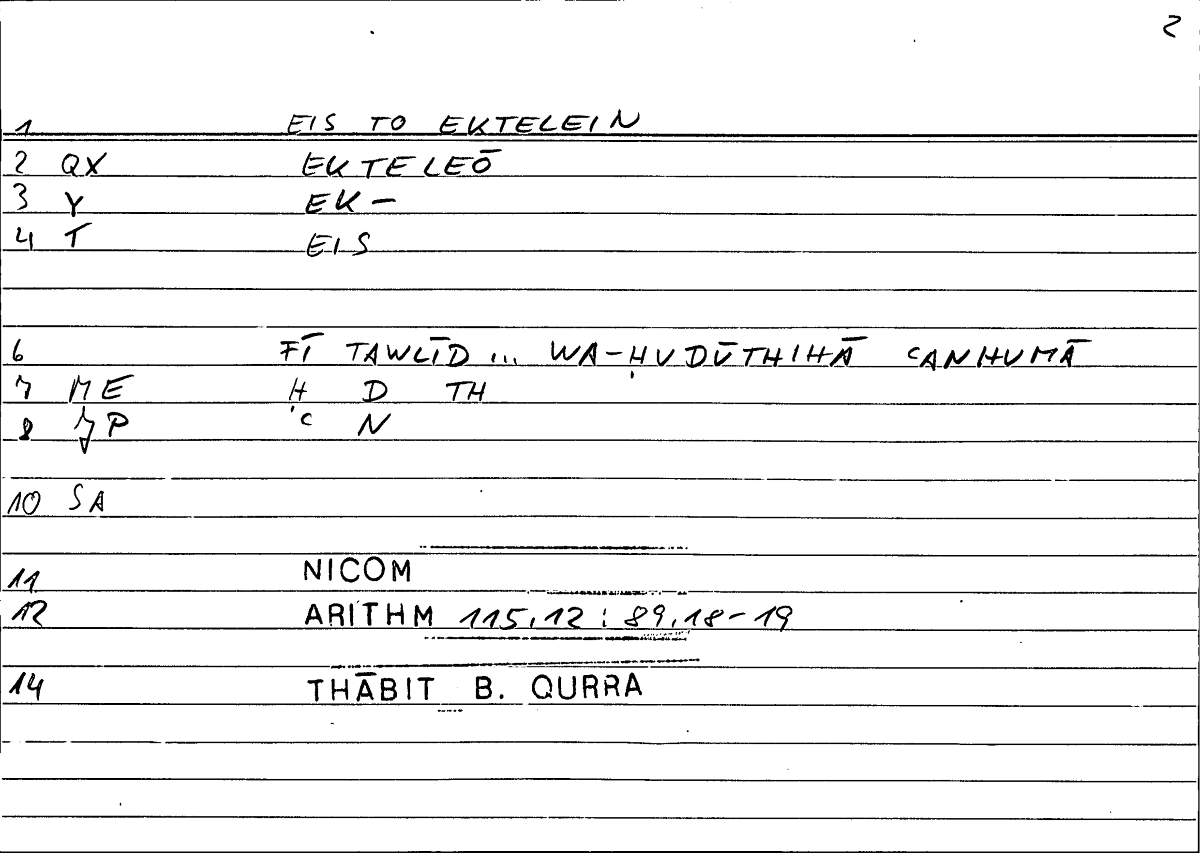 2
1 EIS TO EKTELEIN
2 QX EKTELEŌ
3 Y EK-
4 T EIS
6 FĪ TAWLĪD ... WA-ḤUDŪTHIHĀ ʿANHUMĀ
7 ME Ḥ D TH
8 P ʿ N
10 SA
11 NICOM
12 ARITHM 115,12 : 89,18-19
14 THĀBIT B. QURRA